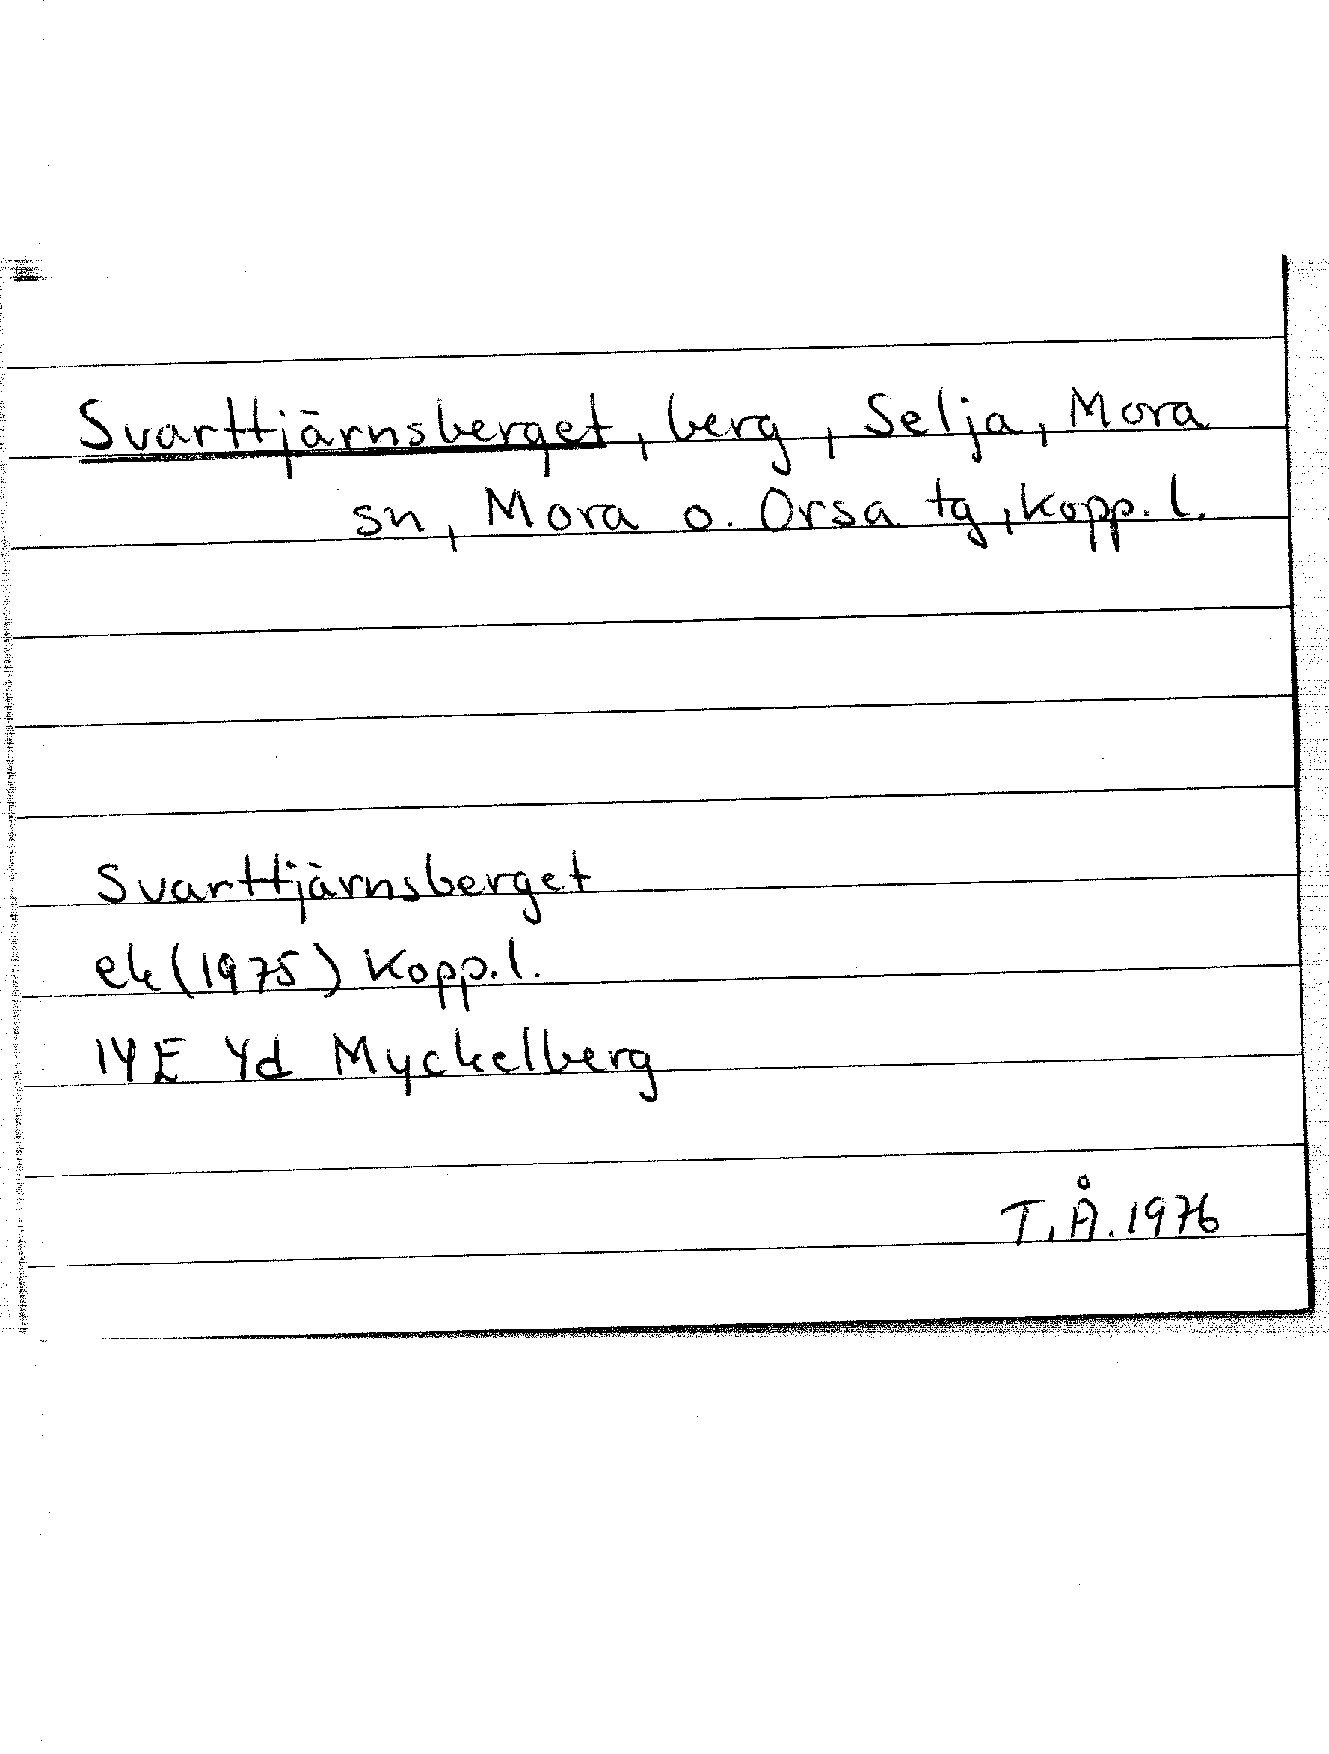 Svarttjärnsberget, berg, Selja, Mora
sn, Mora o. Orsa tg, Kopp. l.
Svarttjärnsberget
ek (1975) Kopp. l.
14E 4d Myckelberg
T.Å. 1976